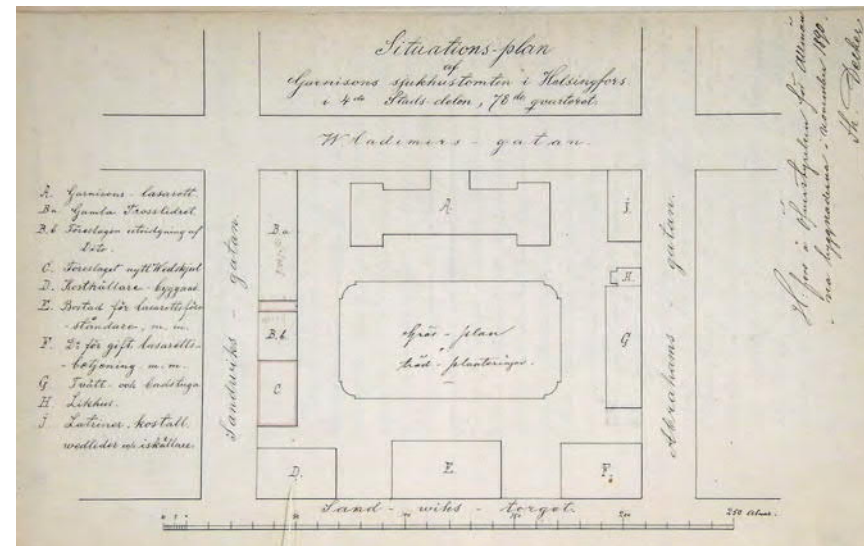 Situations-plan
af
Garnisons sjukhustomten i Helsingfors
i 4de Stads-delen, 78de qvarteret.
Wladimers-gatan.
A. Garnisons-lasarett.
Ba Gamla Trosslidret.
B.b Föreslagen utvidgning af
Dito.
C. Föreslaget nytt Wedskjul
D. Kostkällare-byggnad.
E. Bostad för lasarettsföre-
-ståndare, m. m.
F. Do för gift. lasaretts-
-betjening m. m.
G Tvätt- och badstuga
H Likhus.
J. Latriner, kostall,
wedlider o. iskällare.
Sandwiks-gatan.
Abrahams-gatan.
A.
B.a
B.b.
C
D.
E.
F.
G
H.
J.
Gräs-plan
träd-planteringar.
Sand-wiks-torget.
50
100
150
200
250 Alnar.
H.fors i Öfverstyrelsen för Allmän-
na byggnaderna i november 1890.
Th. Decker